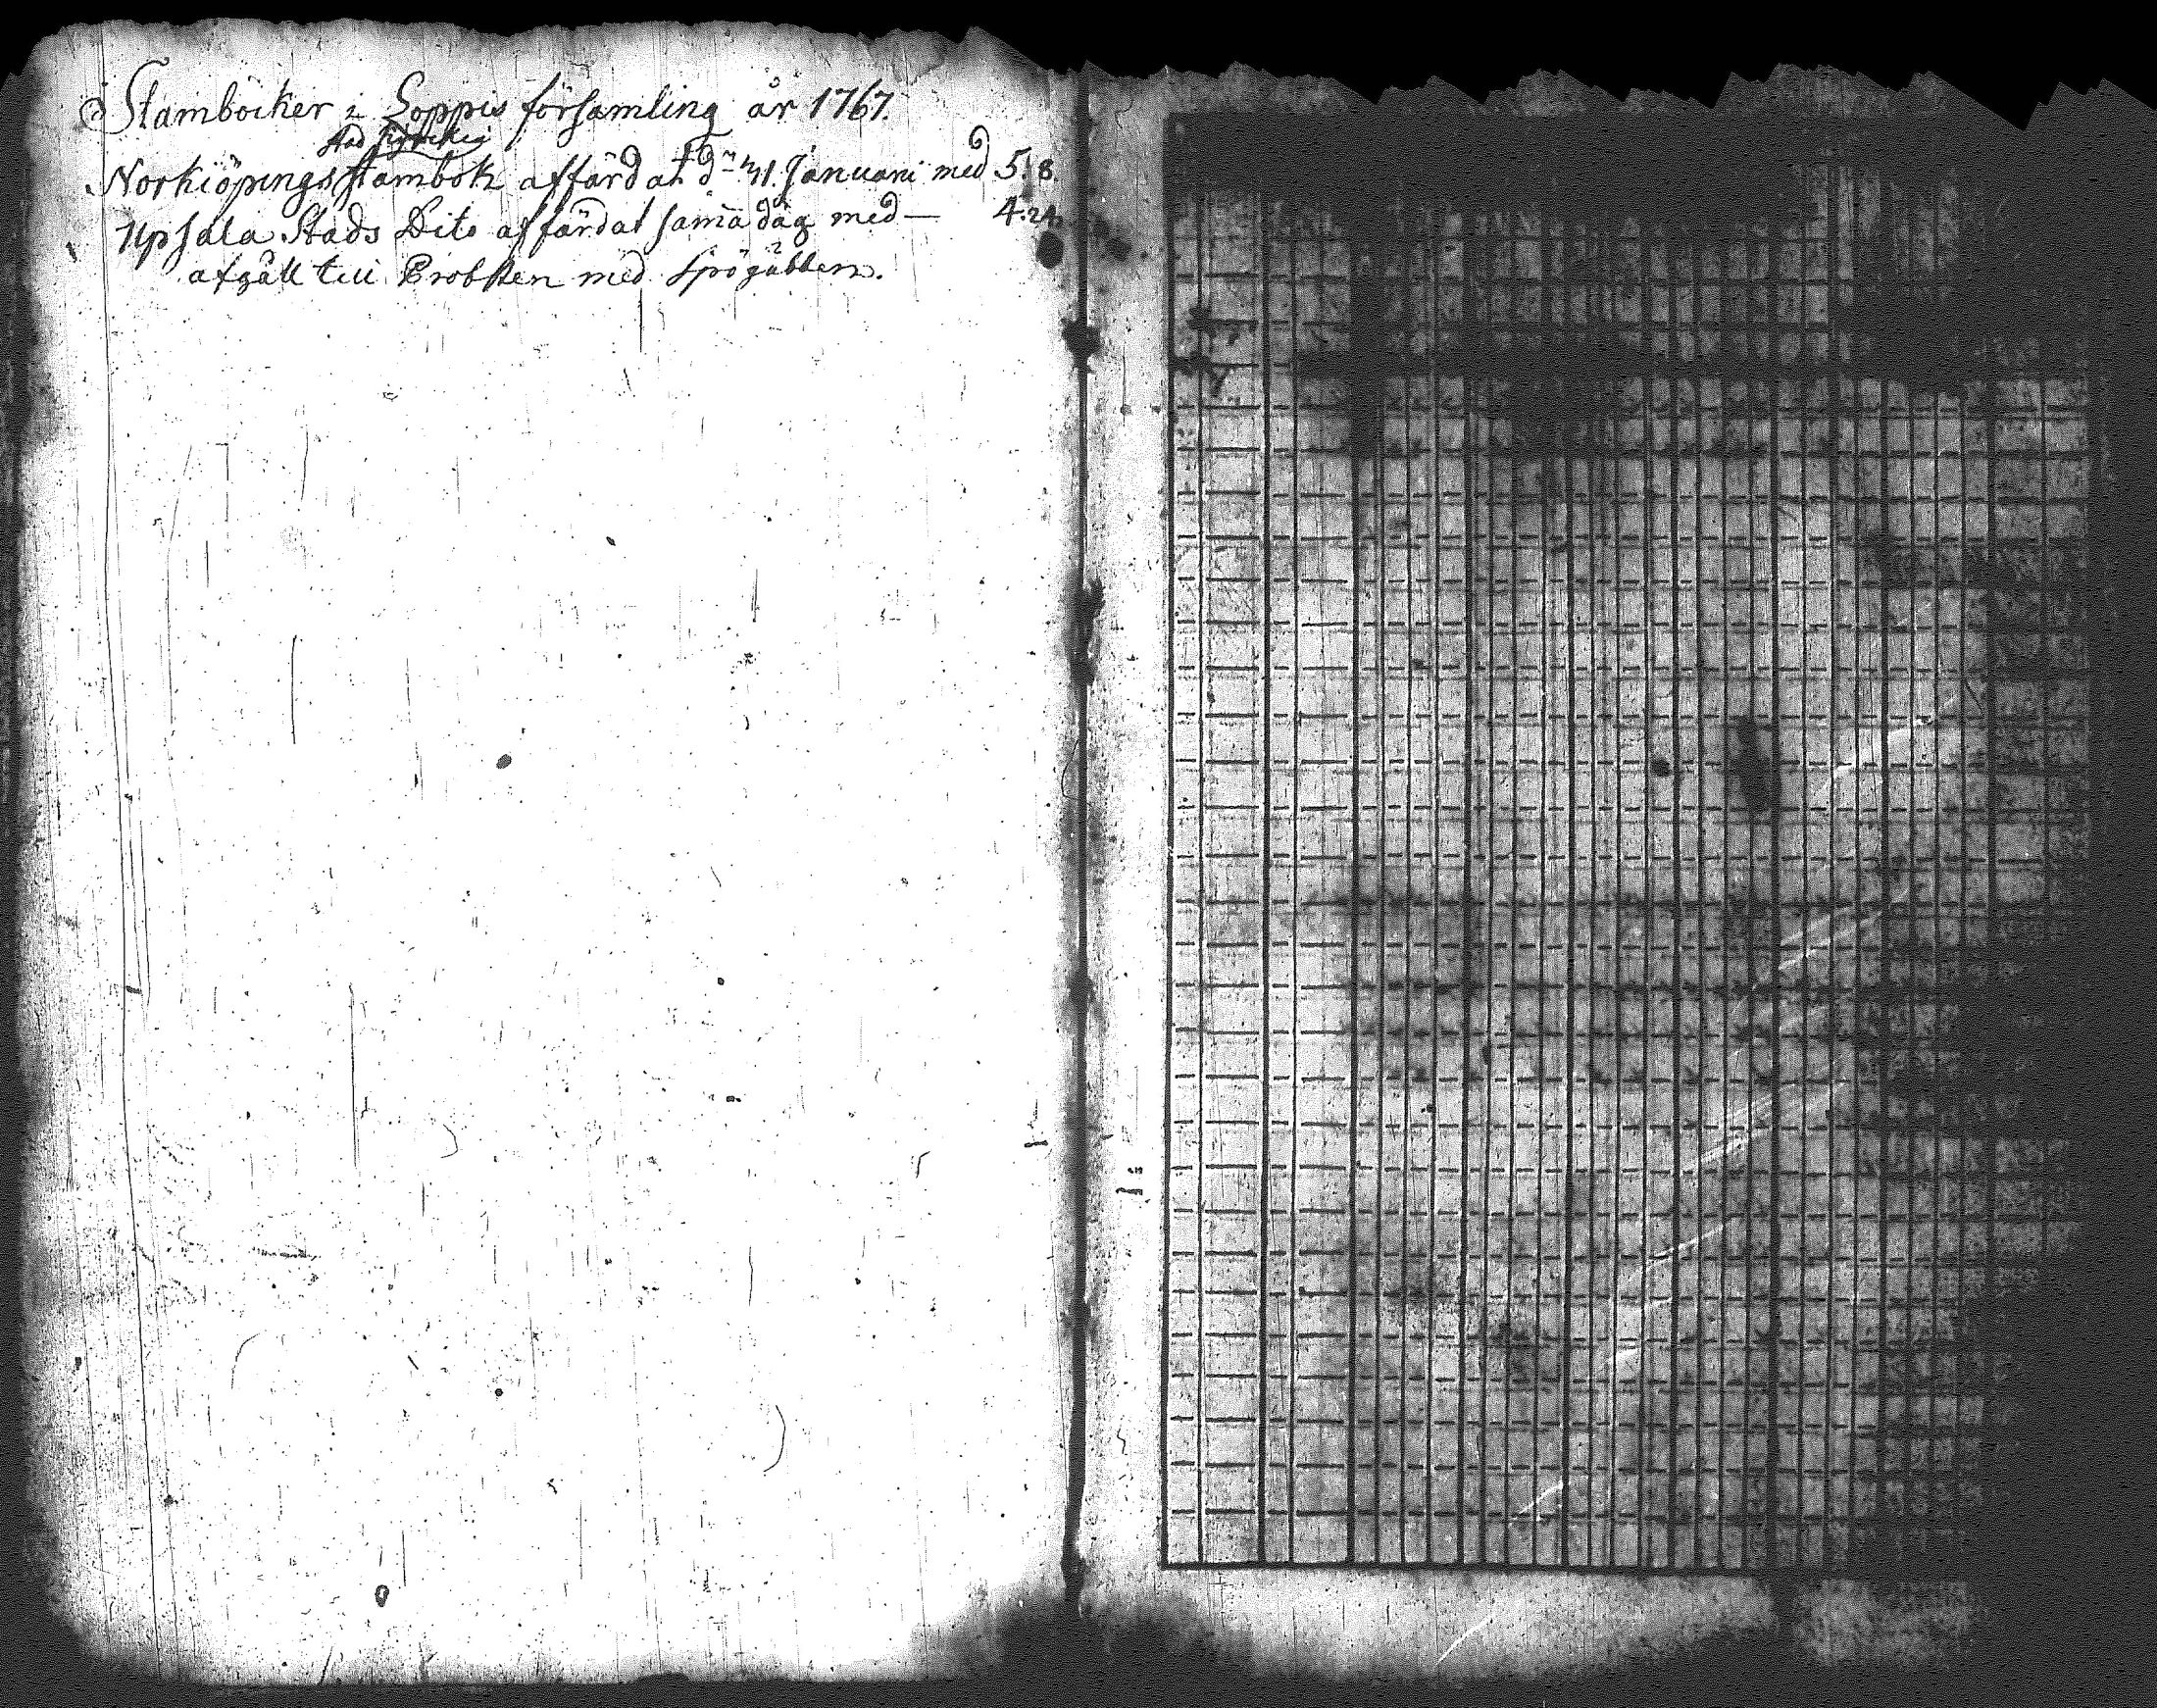 Stamböcker i Loppis församling år 1767.
Stad kyrckei
Norkiöpings stambok affärdat d. 11. Januari med 5. 8.
Upsala Stads Dito affärdat sama dag med — 4. 24.
afgått till Probsten med Spögubben.